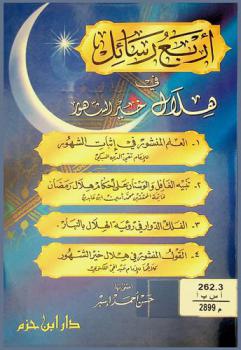 أربع رسائل
في
هلال خير الشهور
١- العلم المنشور في إثبات الشهور
للإمام تقي الدين السبكي
٢- تنبيه الغافل والوسنان على أحكام هلال رمضان
٣- الفلك الدوار في رؤية الهلال بالنهار
٤- القول المنشور في هلال خير الشهور
اعتنى بها
حسن أحمد إسبر
دار ابن حزم
262.3
أ س ب
م 2899